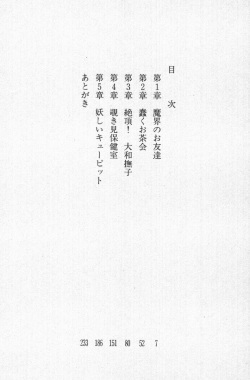 目次
第1章　魔界のお友達　7
第2章　蠢くお茶会　52
第3章　絶頂！　大和撫子　80
第4章　覗き見保健室　151
第5章　妖しいキューピット　186
あとがき　233